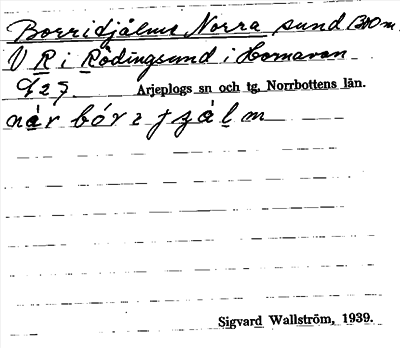 Borridjålme Norra sund 1300 m.
V R i Rödingsund i Hornavan
Arjeplogs sn och tg, Norrbottens län.
Sigvard Wallström, 1939.